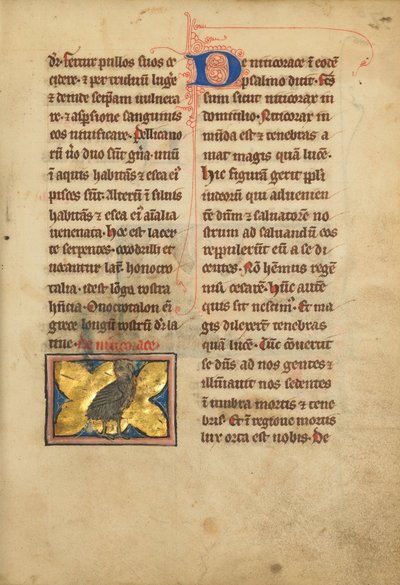 dr̄. Fertur pullos suos oc
cidere. & per triduum̄ luge
re & deinde seip̄am uulnera
re. & asp̄sione sanguinis
eos uiuificare. Pellicano
rū ū duo sūt gn̄a. unū
ī aquis habitās & esca ei
pisces sūt. Alterū ī siluis
habitās & esca ei aīalia
uenenata. Hoc est lacer
te serpentes. cocodrilli et
uocantur lat̄. honocro
talia. id est lōga rostra
hn̄cia. Onocrotalon en̄
grece longū rostrū dr̄ la
tine. De nicticorace.
De nicticorace ī eodē
psalmo dicit. Fc̄s
sum sicut nicticorax in
domicilio. Nicticorax in
mūda est & tenebras a
mat magis quā lucē.
Hic figurā gerit pp̄li
iudeorū qui aduenien
tē dn̄m & saluatorē no
strum ad saluandū eos
reppulerūt eū a se di
centes. Nō hēmus regē
nisi cesarē. Hūc autē
quis sit nescim⁹. Et ma
gis dilexerūt tenebras
quā lucē. Tūc cōuertit
se dn̄s ad nos gentes &
illūīauit nos sedentes
ī umbra mortis & tene
bris. Et ī regione mortis
lux orta est nobis. De